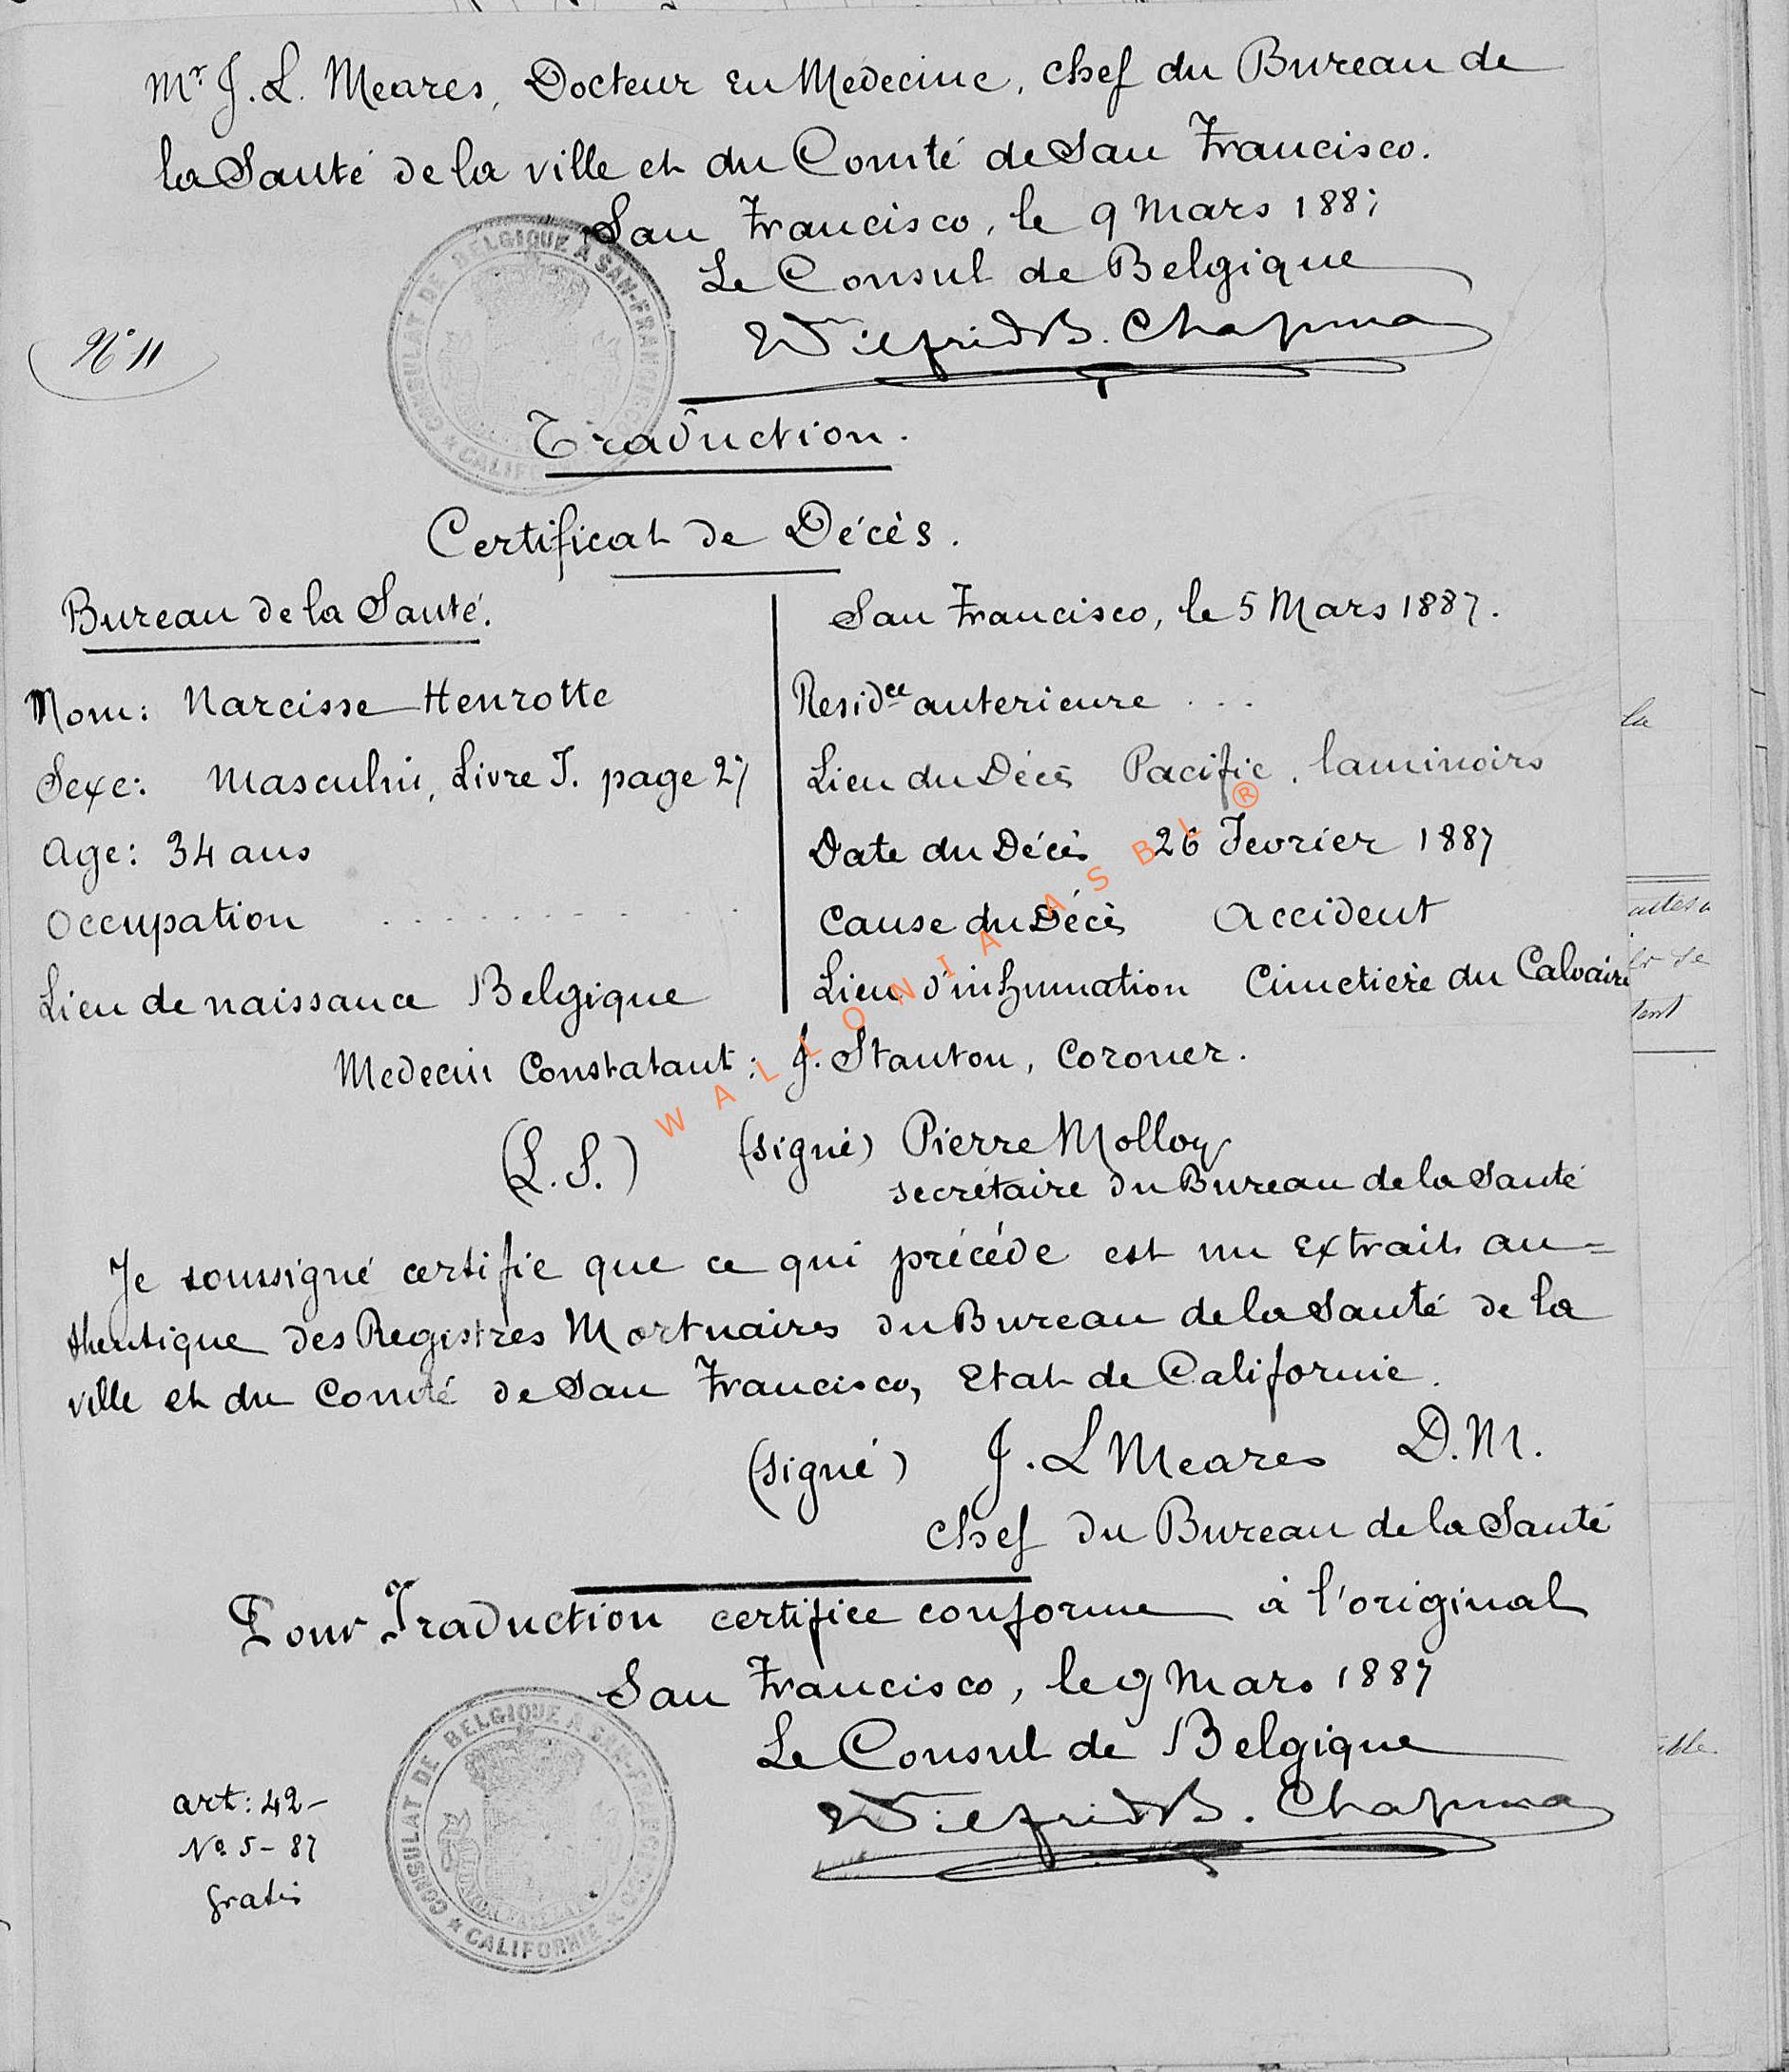 Mr J. L. Meares, Docteur en Medecine, chef du Bureau de
la Santé de la ville et du Comté de San Francisco.
San Francisco, le 9 Mars 1887
Le Consul de Belgique
Wilfrid B. Chapman
No 11
CONSULAT DE BELGIQUE A SAN-FRANCISCO * CALIFORNIE *
Traduction.
Certificat de Décès.
Bureau de la Santé.
San Francisco, le 5 Mars 1887.
Nom: Narcisse Henrotte
Residce anterieure ...
Sexe: Masculin, Livre J. page 27
Lieu du Décès Pacific, laminoirs
Age: 34 ans
Date du Décès 26 Fevrier 1887
Occupation ............
Cause du Décès Accident
Lieu de naissance Belgique
Lieu d'inhumation Cimetière du Calvaire
Medecin Constatant: J. Stanton, Coroner.
(L. S.) (signé) Pierre Molloy
secrétaire du Bureau de la Santé
Je soussigné certifie que ce qui précéde est un Extrait au=
thentique des Registres Mortuaires du Bureau de la Santé de la
ville et du Comté de San Francisco, Etat de Californie.
(signé) J. L Meares D.M.
Chef du Bureau de la Santé
Pour Traduction certifiee conforme à l'original
San Francisco, le 9 Mars 1887
Le Consul de Belgique
Wilfrid B. Chapman
art: 42-
No 5-87
gratis
CONSULAT DE BELGIQUE A SAN-FRANCISCO * CALIFORNIE *
WALLONIA ASBL ®
la
tent